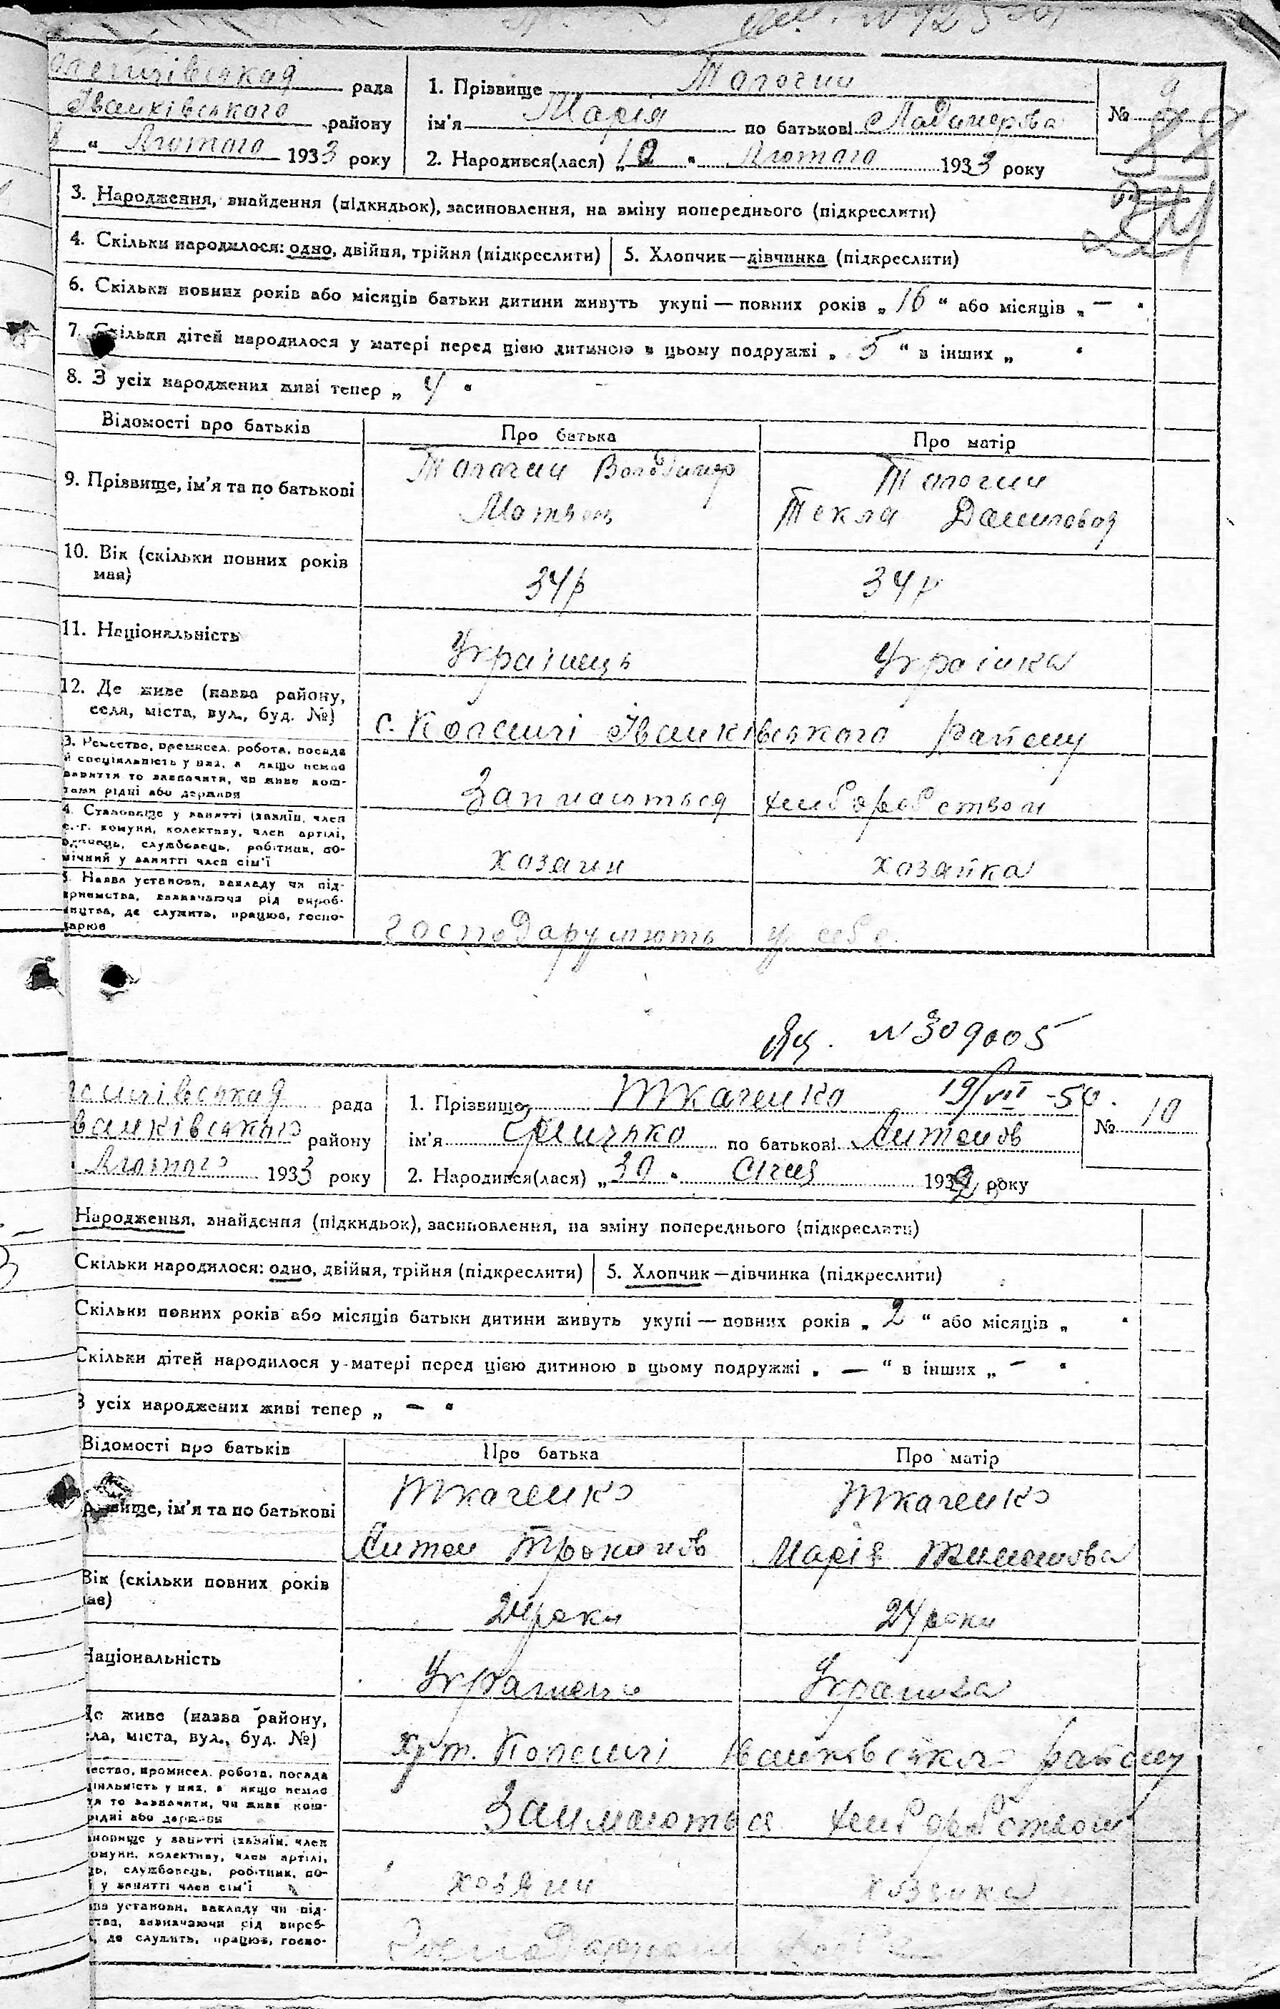 рада
Іванківського району
Лютого 1933 року
1. Прізвище
ім'я Марія по батькові
2. Народився(лася) „10 " Лютого 1933 року
№ 9
3. Народження, знайдення (підкидьок), засиповлення, на зміну попереднього (підкреслити)
4. Скільки народилося: одно, двійня, трійня (підкреслити)
5. Хлопчик—дівчинка (підкреслити)
6. Скільки повних років або місяців батьки дитини живуть укупі — повних років „ 16 " або місяців „ — "
7. Скільки дітей народилося у матері перед цією дитиною в цьому подружжі „ 5 " в інших „ "
8. З усіх народжених живі тепер „ 4 "
Відомості про батьків
Про батька
Про матір
9. Прізвище, ім'я та по батькові
Володимир
Текля
10. Вік (скільки повних років має)
34р
34р
11. Національність
Українець
Українка
12. Де живе (назва району, села, міста, вул., буд. №)
с. Копачі Іванківського району
3. Ремество, промисел, робота, посада
й спеціяльність у них, а якщо немає
заняття то зазначити, чи живе кош-
тами рідні або держави
Займаються хліборобством
4. Становище у занятті (хазяїн, член
с.-г. комуни, колективу, член артілі,
одинець, службовець, робітник, по-
мічний у занятті член сім'ї
хозяин
хозяйка
5. Назва установи, закладу чи під-
приємства, зазначаючи рід вироб-
ництва, де служить, працює, госпо-
дарює
господарують у себе
№ 309005
19/VII -50.
рада
району
Лютого 1933 року
1. Прізвище Ткаченко
ім'я Грицько по батькові Антонов
2. Народився(лася) „30 " січня 193 року
№ 10
Народження, знайдення (підкидьок), засиповлення, на зміну попереднього (підкреслити)
Скільки народилося: одно, двійня, трійня (підкреслити)
5. Хлопчик—дівчинка (підкреслити)
Скільки повних років або місяців батьки дитини живуть укупі — повних років „ 2 " або місяців „ "
Скільки дітей народилося у матері перед цією дитиною в цьому подружжі „ — " в інших „ — "
З усіх народжених живі тепер „ — "
Відомості про батьків
Про батька
Про матір
ім'я та по батькові
Ткаченко
Антон
Ткаченко
Марія
Вік (скільки повних років
24 роки
24 роки
Національність
Українець
Українка
Де живе (назва району,
міста, вул., буд. №)
хут. Копачі Іванківського району
промисел, робота, посада
у них, а якщо немає
то зазначити, чи живе кош-
рідні або держави
Займаються хліборобством
у занятті (хазяїн, член
колективу, член артілі,
службовець, робітник, по-
у занятті член сім'ї
хозяин
хозяйка
установи, закладу чи під-
зазначаючи рід вироб-
де служить, працює, госпо-